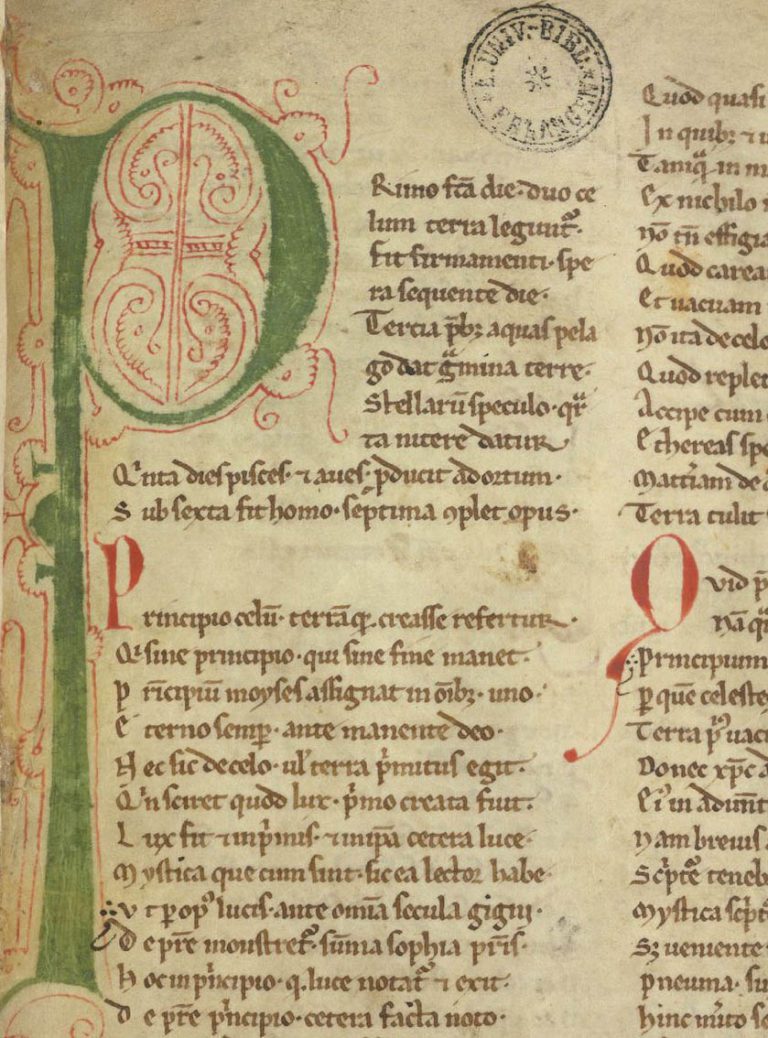 UNIV.-BIBL. ERLANGEN
PRimo fc̄a die· duo ce
lum terra legunt᷑·
fit firmamenti· spe
ra sequente die·
Tercia p̄bꝫ aquas pela
go dat gͣmina terre·
Stellarū speculo· qͥr
ta nitere datur
Qͥnta dies pisces· ⁊ aues· ꝓducit ad ortum·
Sub sexta fit homo· septima ꝯplet opus·
Principio celū· terrāqꝫ creasse refertur·
Qͥ sine principio· qui sine fine manet·
Pͥncipiū moyses assignat in oīb;· uno·
Eterno semꝑ· ante manente deo·
Hec sic de celo· ul᷑ terra pͥmitus egit·
Qͥn sciret quod lux· pͥmo creata fuit·
Lux fit ⁊ in pͥmis· ⁊ in ip̄a cetera luce·
Mystica que cum sint· sic ea lector habe·
Vt ꝑ op᷒ lucis· ante om̄ia secula gigni·
De pr̄e monstret᷑· sūma sophia pr̄is·
Hoc in pͥncipio· q. luce notat᷑ ⁊ exit·
De pr̄e pͥncipio· cetera facta noto·
Quod quasi
In quibꝫ ⁊ u
Tamqͣ in m
Ex nichilo
nō tn̄ effigia
Quod carea
Et uacuam
Nō ita de celo
Quod replet
Accipe cum
Ethereas spe
Mat̄iam de
Terra tulit
Quid p̄
Nā qͥ
Principium
ꝑ quē celeste
Terra pͥ᷒ uac
Donec xp̄c a
Ei᷒ in aduēt
Nam breuis
Sc̄pte᷒ teneb
Mystica sc̄pt
Sꝫ ueniente
pneuma· su
hinc mīto se